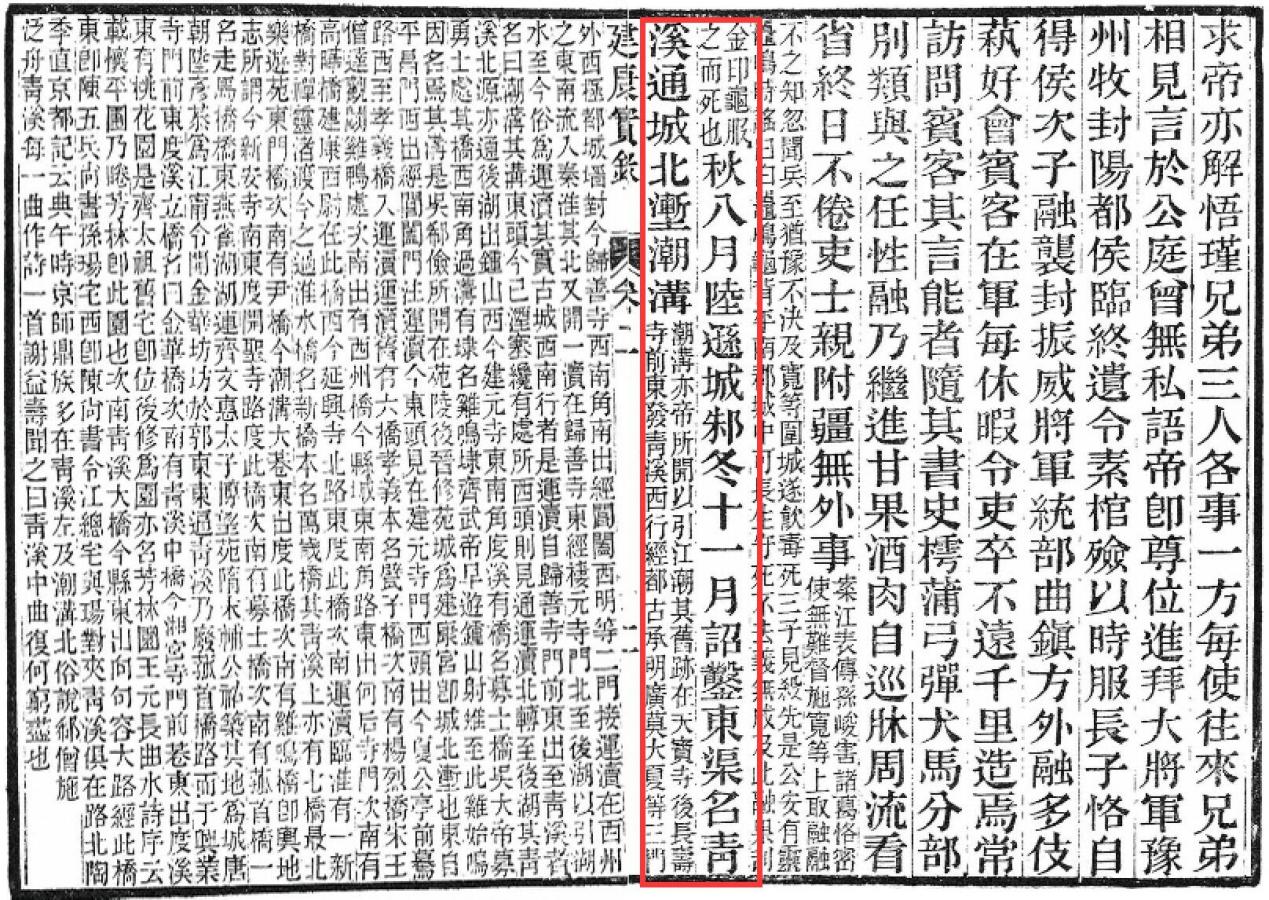 求帝亦解悟瑾兄弟三人各事一方每使往來兄弟
相見言於公庭曾無私語帝卽尊位進拜大將軍豫
州牧封陽都侯臨終遺令素棺殮以時服長子恪自
得侯次子融襲封振威將軍統部曲鎮方外融多伎
蓺好會賓客在軍每休暇令吏卒不遠千里造焉常
訪問賓客其言能者隨其書史樗蒲弓彈犬馬分部
別類與之任性融乃繼進甘果酒肉自巡牀周流看
省終日不倦吏士親附疆無外事案江表傳孫峻害諸葛恪密
使無難督施寬等上取融融
不之知忽聞兵至猶豫不決及寬等圍城遂飮毒死三子見殺先是公安有靈
鼉鳴時謠曰鼉鳴龜背平南郡城中可長生守死不去義無成及此融果刮
金印龜服
之而死也秋八月陸遜城邾冬十一月詔鑿東渠名青
溪通城北塹潮溝潮溝亦帝所開以引江潮其舊跡在天寶寺後長壽
寺前東發青溪西行經都古承明廣莫大夏等三門
建康實錄 卷二 二
外西極都城墻對今歸善寺西南角南出經閶闔西明等二門接運瀆在西州
之東南流入秦淮其北又開一瀆在歸善寺東經棲元寺門北至後湖以引湖
水至今俗爲運瀆其實古城西南行者是運瀆自歸善寺門前東出至青溪者
名曰潮溝其溝東頭今已湮塞纔有處所西頭則見通運瀆北轉至後湖其青
溪北源亦通後湖出鍾山西今建元寺東南角度溪有橋名募士橋吳大帝募
勇士處其橋西南角過溝有埭名雞鳴埭齊武帝早遊鍾山射雉至此雞始鳴
因名焉其溝是吳郗儉所開在苑陵後晉修苑城爲建康宮卽城北塹也東自
平昌門西出經閶闔門注運瀆今東頭見在建元寺門西頭出今夏公亭前鴦
路西至孝義橋入運瀆運瀆皆有六橋孝義本名甓子橋次南有楊烈橋宋王
僧達觀鬬雞鴨處次南出有西州橋今縣城東南角路東出何后寺門次南有
高曄橋建康西尉在此橋西今延興寺北路東度此橋次南運瀆臨淮有一新
橋對禪靈渚渡今之過淮水橋名新橋本名萬歲橋其青溪上亦有七橋最北
樂遊苑東門橋次南有尹橋今潮溝大巷東出度此橋次南有雞鳴橋卽輿地
志所謂今新安寺南東度開聖寺路度此橋次南有募士橋次南有菰首橋一
名走馬橋橋東燕雀湖湖連齊文惠太子博望苑隋末輔公祏築其地爲城唐
朝陸彥恭爲江南令開金華坊坊於郭東東逼青溪乃廢菰首橋路而于興業
寺門前東度溪立橋名曰金華橋次南有青溪中橋今湘宮寺門前巷東出度溪
東有桃花園是齊太祖舊宅卽位後修爲園亦名芳林園王元長曲水詩序云
載懷平圃乃睠芳林卽此園也次南青溪大橋今縣東出向句容大路經此橋
東卽陳五兵尚書孫瑒宅西卽陳尚書令江總宅與瑒對夾青溪俱在路北陶
季直京都記云典午時京師鼎族多在青溪左及潮溝北俗說郗僧施
泛舟青溪每一曲作詩一首謝益壽聞之曰青溪中曲復何窮盡也